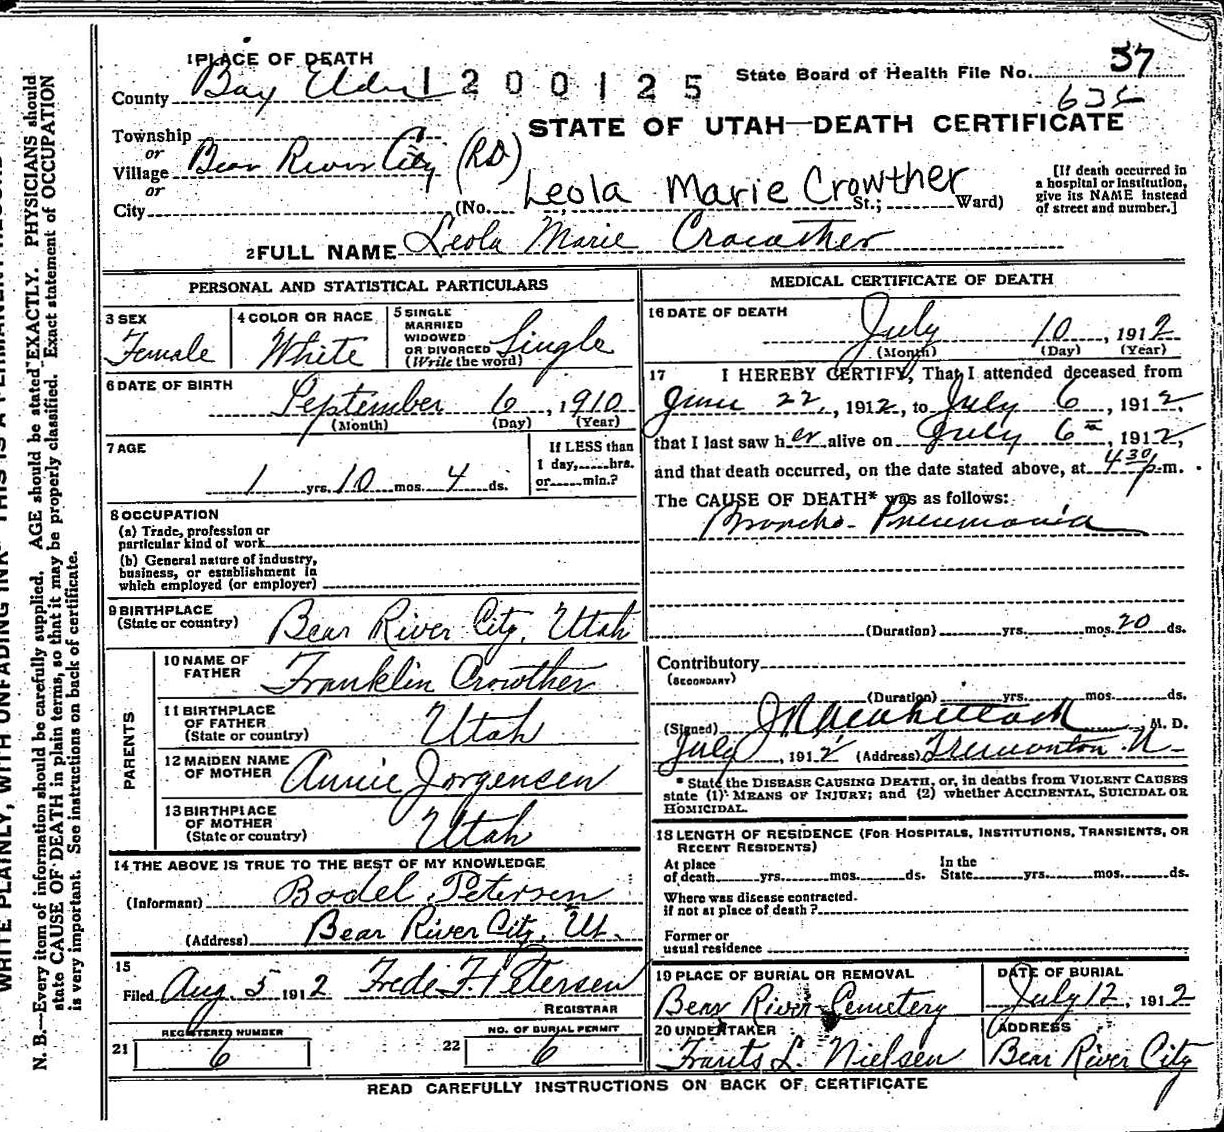 1 PLACE OF DEATH
County Box Elder 1200125 State Board of Health File No. 37
635
STATE OF UTAH—DEATH CERTIFICATE
Township
or
Village Bear River City (RD)
or
City (No. St.; Ward)
Leola Marie Crowther
[If death occurred in
a hospital or institution,
give its NAME instead
of street and number.]
2 FULL NAME Leola Marie Crowther
PERSONAL AND STATISTICAL PARTICULARS
3 SEX
Female
4 COLOR OR RACE
White
5 SINGLE
MARRIED
WIDOWED
OR DIVORCED
(Write the word)
Single
6 DATE OF BIRTH
September 6, 1910
(Month) (Day) (Year)
7 AGE
1 yrs. 10 mos. 4 ds.
If LESS than
1 day,......hrs.
or......min.?
8 OCCUPATION
(a) Trade, profession or
particular kind of work
(b) General nature of industry,
business, or establishment in
which employed (or employer)
9 BIRTHPLACE
(State or country) Bear River City, Utah
PARENTS
10 NAME OF
FATHER Franklin Crowther
11 BIRTHPLACE
OF FATHER
(State or country) Utah
12 MAIDEN NAME
OF MOTHER Annie Jorgensen
13 BIRTHPLACE
OF MOTHER
(State or country) Utah
14 THE ABOVE IS TRUE TO THE BEST OF MY KNOWLEDGE
(Informant) Bodel Petersen
(Address) Bear River City, Ut.
15
Filed Aug. 5 1912 Frede F. Petersen
REGISTRAR
REGISTERED NUMBER
21 6
NO. OF BURIAL PERMIT
22 6
MEDICAL CERTIFICATE OF DEATH
16 DATE OF DEATH
July 10, 1912
(Month) (Day) (Year)
17 I HEREBY CERTIFY, That I attended deceased from
June 22, 1912, to July 6, 1912,
that I last saw her alive on July 6th, 1912,
and that death occurred, on the date stated above, at 4 30 p.m.
The CAUSE OF DEATH* was as follows:
Broncho-Pneumonia
(Duration) yrs. mos. 20 ds.
Contributory
(SECONDARY)
(Duration) yrs. mos. ds.
(Signed) M. D.
July, 1912 (Address) Tremonton U
* State the DISEASE CAUSING DEATH, or, in deaths from VIOLENT CAUSES
state (1) MEANS OF INJURY; and (2) whether ACCIDENTAL, SUICIDAL OR
HOMICIDAL.
18 LENGTH OF RESIDENCE (FOR HOSPITALS, INSTITUTIONS, TRANSIENTS, OR
RECENT RESIDENTS)
At place
of death......yrs.......mos.......ds.
In the
State......yrs.......mos.......ds.
Where was disease contracted.
if not at place of death?
Former or
usual residence
19 PLACE OF BURIAL OR REMOVAL
Bear River Cemetery
DATE OF BURIAL
July 12, 1912
20 UNDERTAKER
Frants L. Nielsen
ADDRESS
Bear River City
READ CAREFULLY INSTRUCTIONS ON BACK OF CERTIFICATE
N. B.—Every item of information should be carefully supplied. AGE should be stated EXACTLY. PHYSICIANS should
state CAUSE OF DEATH in plain terms, so that it may be properly classified. Exact statement of OCCUPATION
is very important. See instructions on back of certificate.
WRITE PLAINLY, WITH UNFADING INK—THIS IS A PERMANENT RECORD